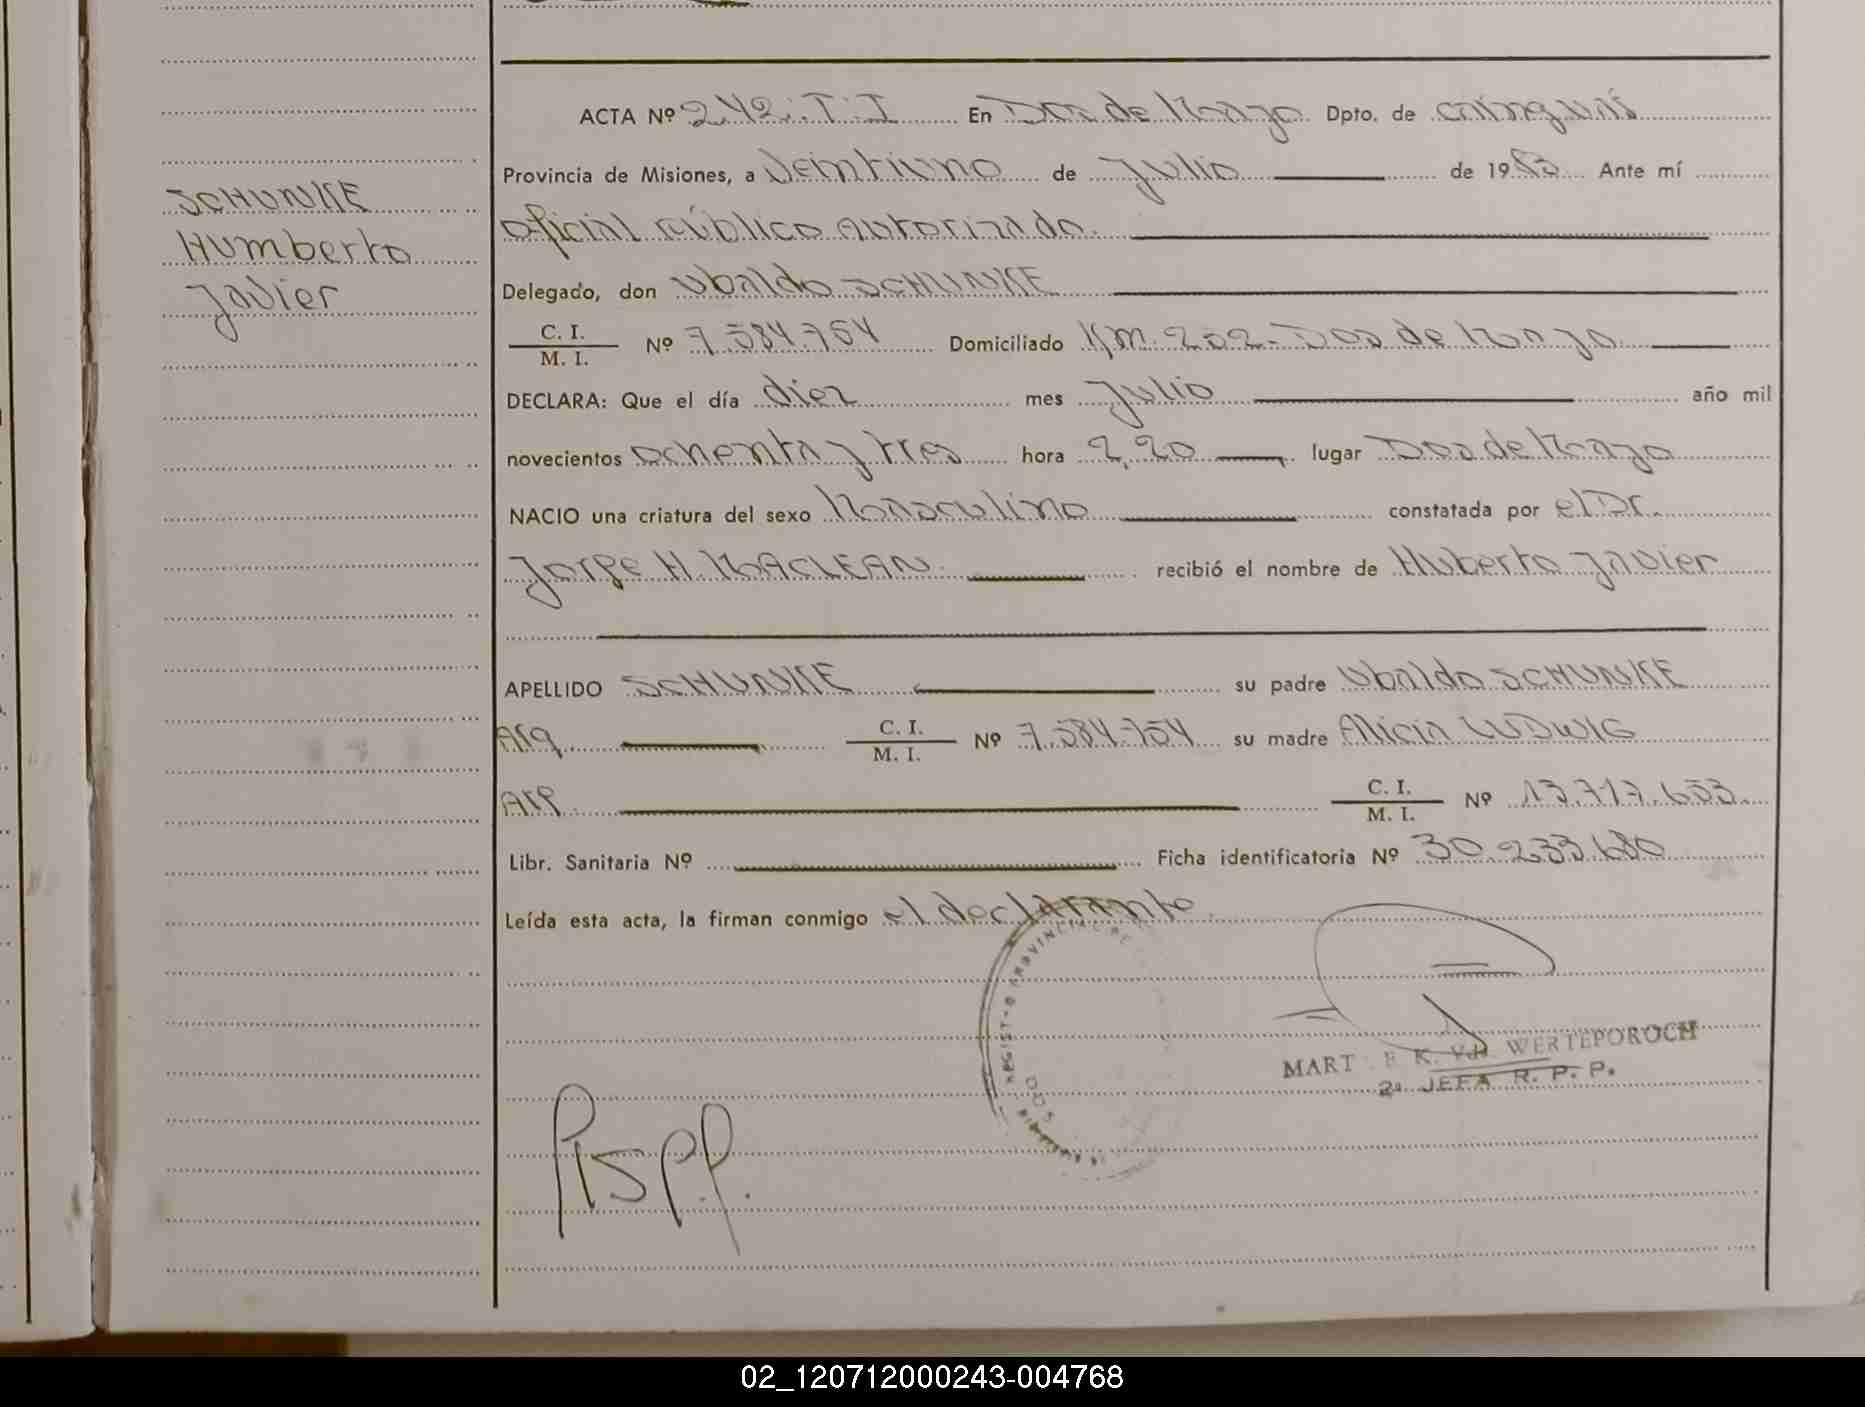 ACTA Nº 242. T. I En Dos de Mayo Dpto. de Cainguás
Provincia de Misiones, a Veintiuno de Julio de 1983 Ante mí
Oficial Público Autorizado.
SCHUNKE
Humberto
Javier
Delegado, don Ubaldo SCHUNKE
C. I.
M. I. Nº 7.584.754 Domiciliado Km. 252 - Dos de Mayo
DECLARA: Que el día diez mes Julio año mil
novecientos ochenta y tres hora 2,20 lugar Dos de Mayo
NACIO una criatura del sexo Masculino constatada por el Dr.
Jorge H. MACLEAN. recibió el nombre de Huberto Javier
APELLIDO SCHUNKE su padre Ubaldo SCHUNKE
Arg. C. I.
M. I. Nº 7.584.754 su madre Alicia LUDWIG
Arg. C. I.
M. I. Nº 13.717.653.
Libr. Sanitaria Nº Ficha identificatoria Nº 30.233.680
Leída esta acta, la firman conmigo el declarante.
WERTEPOROCH
2ª JEFA R. P. P.
02_120712000243-004768